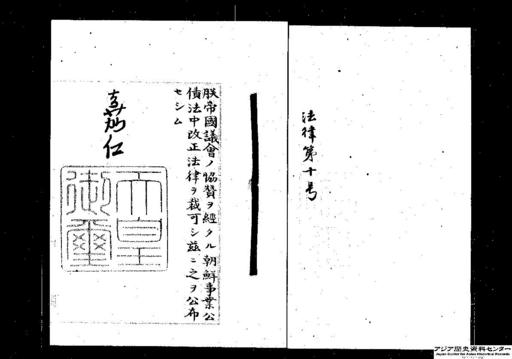 法律第十号
朕帝國議會ノ協賛ヲ經タル朝鮮事業公
債法中改正法律ヲ裁可シ茲ニ之ヲ公布
セシム
嘉仁
天皇
御璽
アジア歴史資料センター
Japan Center for Asian Historical Records